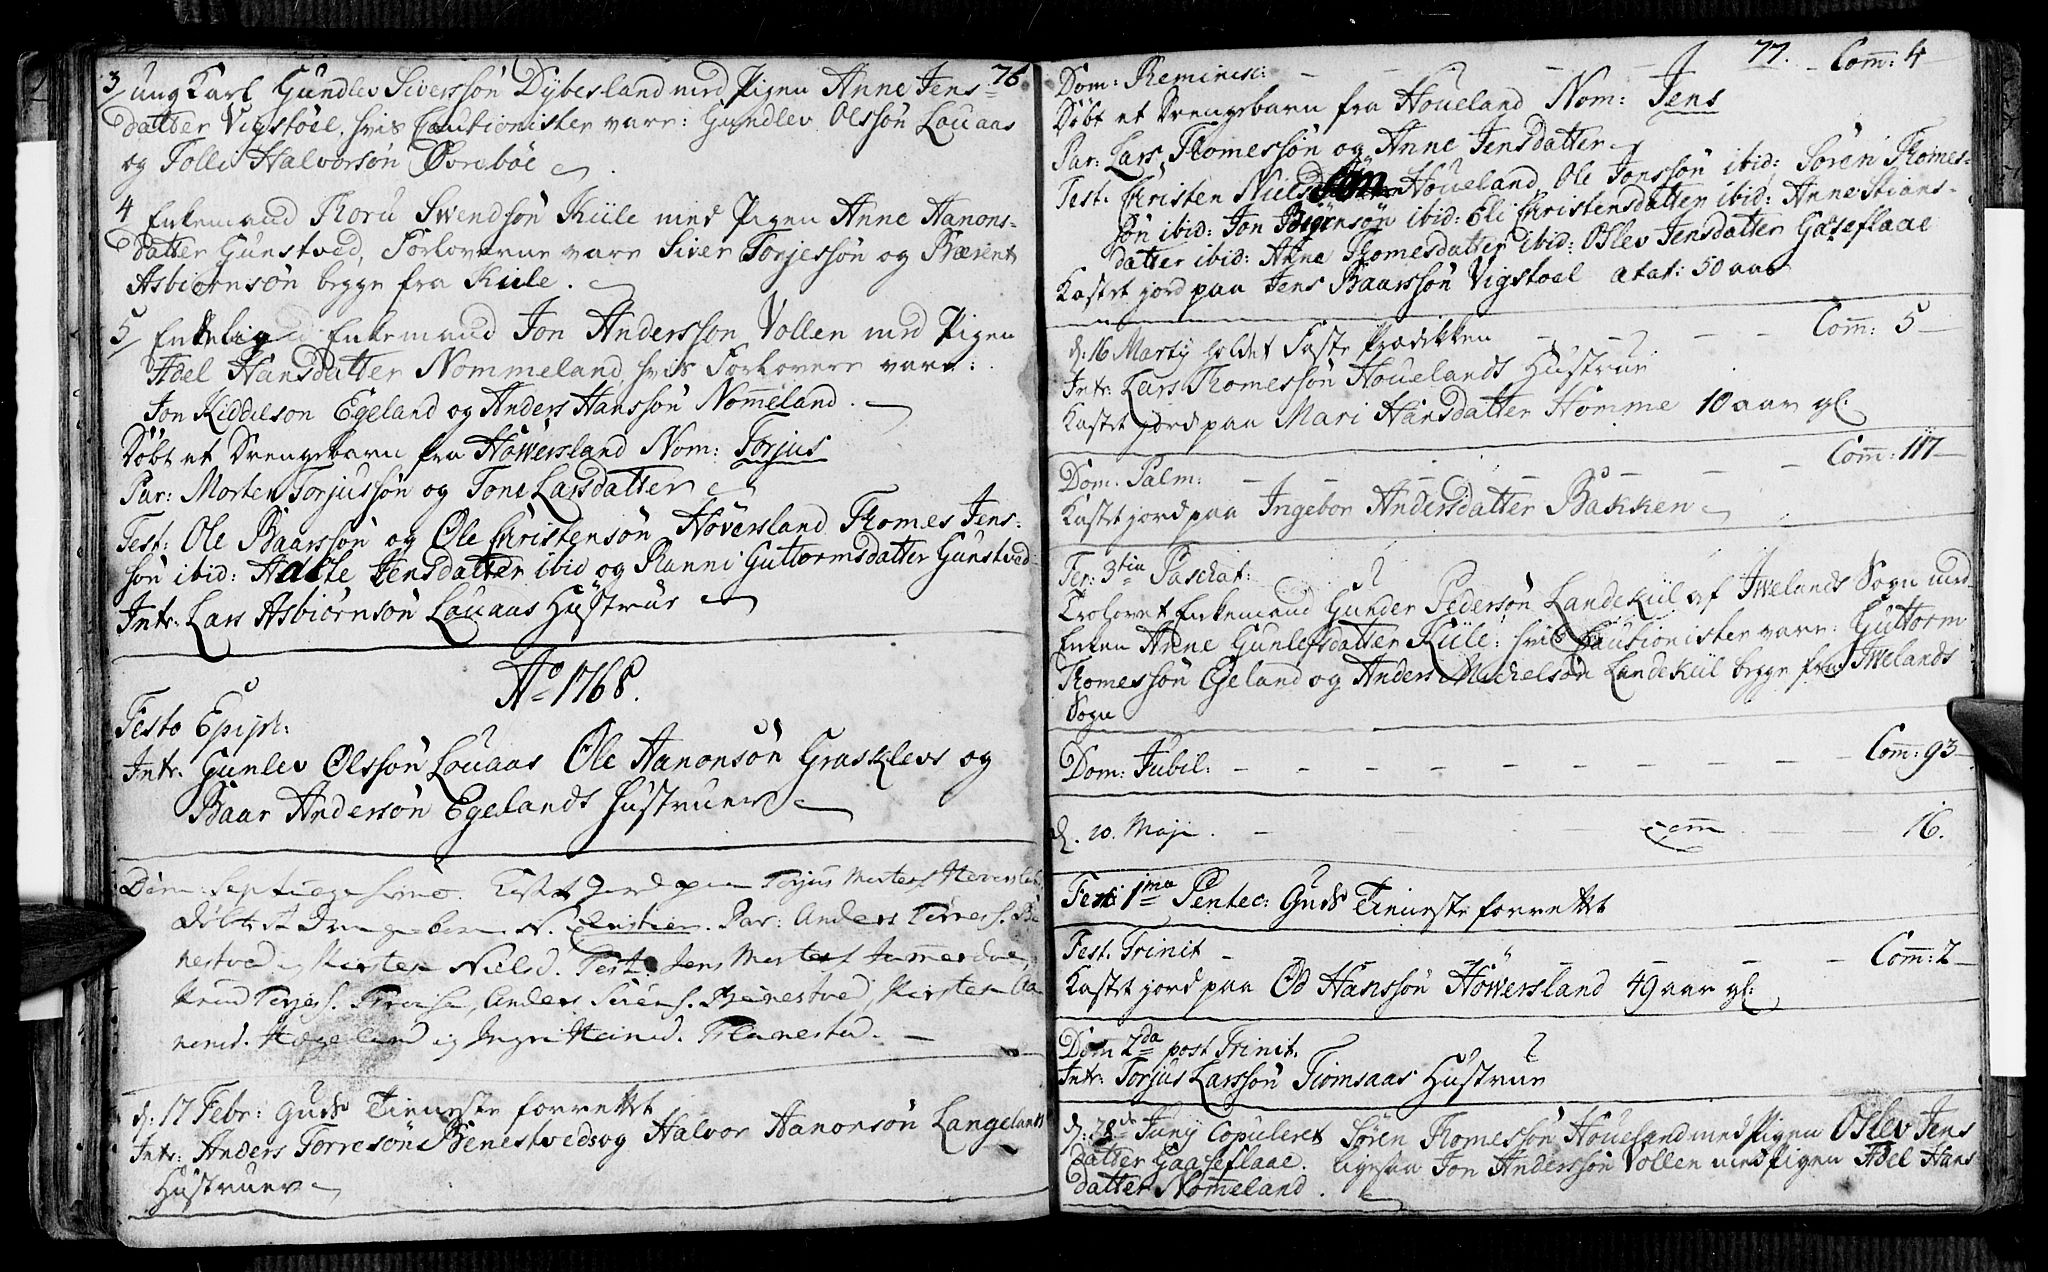 76
3/ ung Karl Gundlev Siverssön Dÿbesland med Pigen Anne Jens=
datter Vigstöel, hvis Cautionister vare: Gundlev Olssön Louaas
og Tolle Halvorsön Övreböe
4 Enkemand Thoru Swendsön Kiile med Pigen Anne Aanons-
datter Gunstved, Forlovere vare Siver Torjessön og Bærent
Asbiörnsön begge fra Kiile.
5/ Enkemand Jon Anderssön Vollen med Pigen
Adel Hansdatter Nommeland, hvis Forlovere vare:
Jon Kiddelson Egeland og Anders Hanssön Nom̅eland.
Döbt et Drengebarn fra Höwersland Nom: Torjus
Par: Morten Torjussön og Tone Larsdatter
Test: Ole Baarssön og Ole Christensön Höversland Thomes Jens:
sön ibid: Aaste Jensdatter ibid og Ranni Guttormsdatter Gunstved
Intr: Lars Asbiörnsön Louaas Hustrue
Ao 1768.
Festo Epiph:
Intr: Gunlev Olssön Louaas Ole Aanonsön Grasklevs og
Baar Andersön Egelands Hustruer
Dom: Septuagesima. Kastet Jord paa Torjus Mortens: Höversland
döbt et Drengebarn N. Christen. Par: Anders Torres s. Be
nestved og Kirsten Nielsd. Test: Jens Mortens:
Knud Torjes s. Anders Sörens. Benestved, Kirsten Aa
nensd. Hægeland og Ingri Heinesd.
d: 17 Febr: Guds Tieneste forrettet
Intr: Anders Torresön Benestveds og Halvor Aanonsön Langelands
Hustruer
77.
Dom: Reminisc: - - - - Com̅: 4
Döbt et Drengebarn fra Houeland Nom: Jens
Par: Lars Thomessön og Anne Jensdatter
Test. Christen Nielssön Houeland, Ole Jonssön ibid: Sören Thomes-
sön ibid: Jon Biörnsön ibid: Eli Christensdatter ibid: Anne Stians-
datter ibid: Anne Thomesdatter ibid: Oslev Jensdatter Gaaseflaae
Kastet jord paa Jens Baarssön Vigstoel ætat: 50 aar
d: 16 Martÿ holdet Faste Prædikken - - Com̅: 5
Intr: Lars Thomessön Houelands Hustrue
Kastet jord paa Mari Hansdatter Homme 10 aar gl:
Dom. Palm: - - - - Com̅: 117
Kastet jord paa Ingebor Andersdatter Bakken
Fer: 3tia Paschat:
Trolovet Enkemand Gunder Pedersön Landekiil af Iwelands Sogn med
Enken Anne Gunlefsdatter Kiile: hvis Cautionister vare: Guttorm
Thomessön Egeland og Anders Michelsön Landekiil begge fra Iwelands
Sogn
Dom: Jubil: - - - - - - - Com̅: 93
d. 10. Maji. - - Com̅ - - 16.
Fest: 1ma Pentec: Guds Tieneste forrettet
Fest. Trinit - - - - Com̅: 2
Kastet jord paa Od Hanssön Höwersland 49 aar gl:
Dom 2da post Trinit.
Intr: Torjus Larssön Tiomsaas Hustrue
d: 28de Junÿ Copuleret Sören Thomessön Houeland med Pigen Oslev Jens
datter Gaaseflaae. ligesaa Jon Anderssön Vollen med Pigen Adel Hans
datter Nom̅eland.